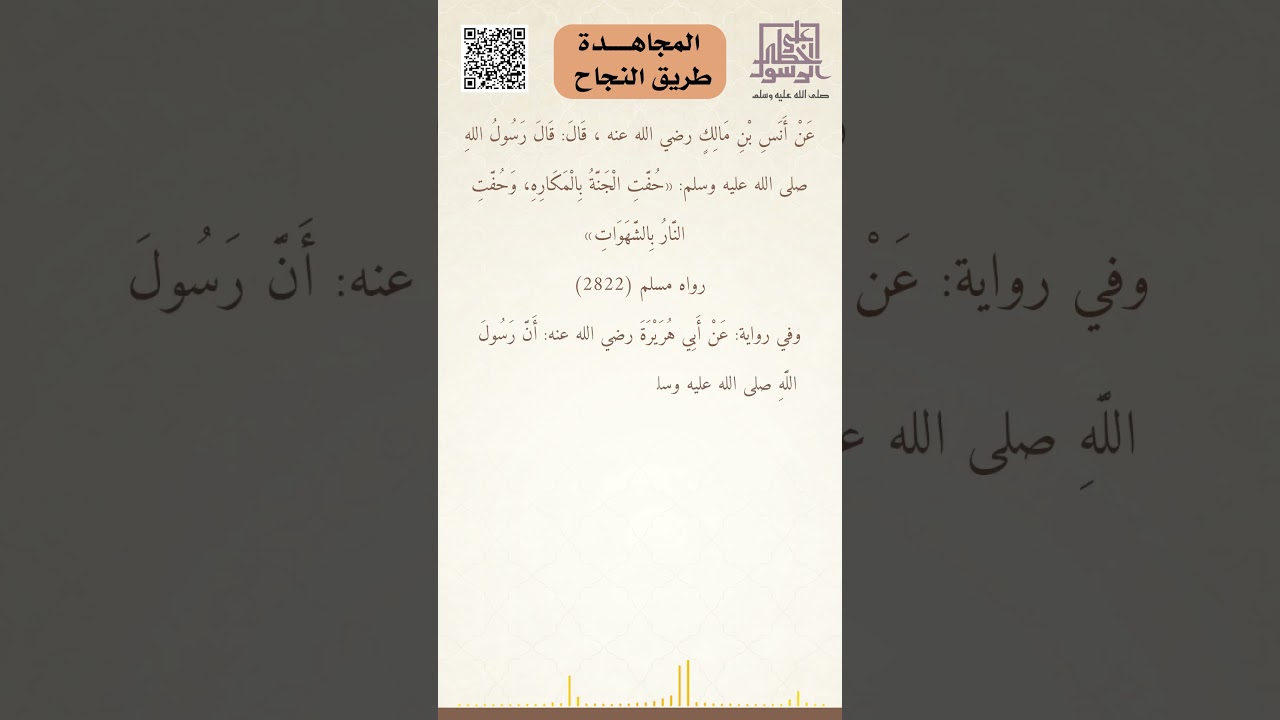 المجاهدة
طريق النجاح
على خطى الرسول
صلى الله عليه وسلم
عَنْ أَنَسِ بْنِ مَالِكٍ رضي الله عنه ، قَالَ: قَالَ رَسُولُ اللهِ
صلى الله عليه وسلم: «حُفَّتِ الْجَنَّةُ بِالْمَكَارِهِ، وَحُفَّتِ
النَّارُ بِالشَّهَوَاتِ»
رواه مسلم (2822)
وفي رواية: عَنْ أَبِي هُرَيْرَةَ رضي الله عنه: أَنَّ رَسُولَ
اللَّهِ صلى الله عليه وسل
وفي رواية: عَنْ
عنه: أَنَّ رَسُولَ
اللَّهِ صلى الله ع